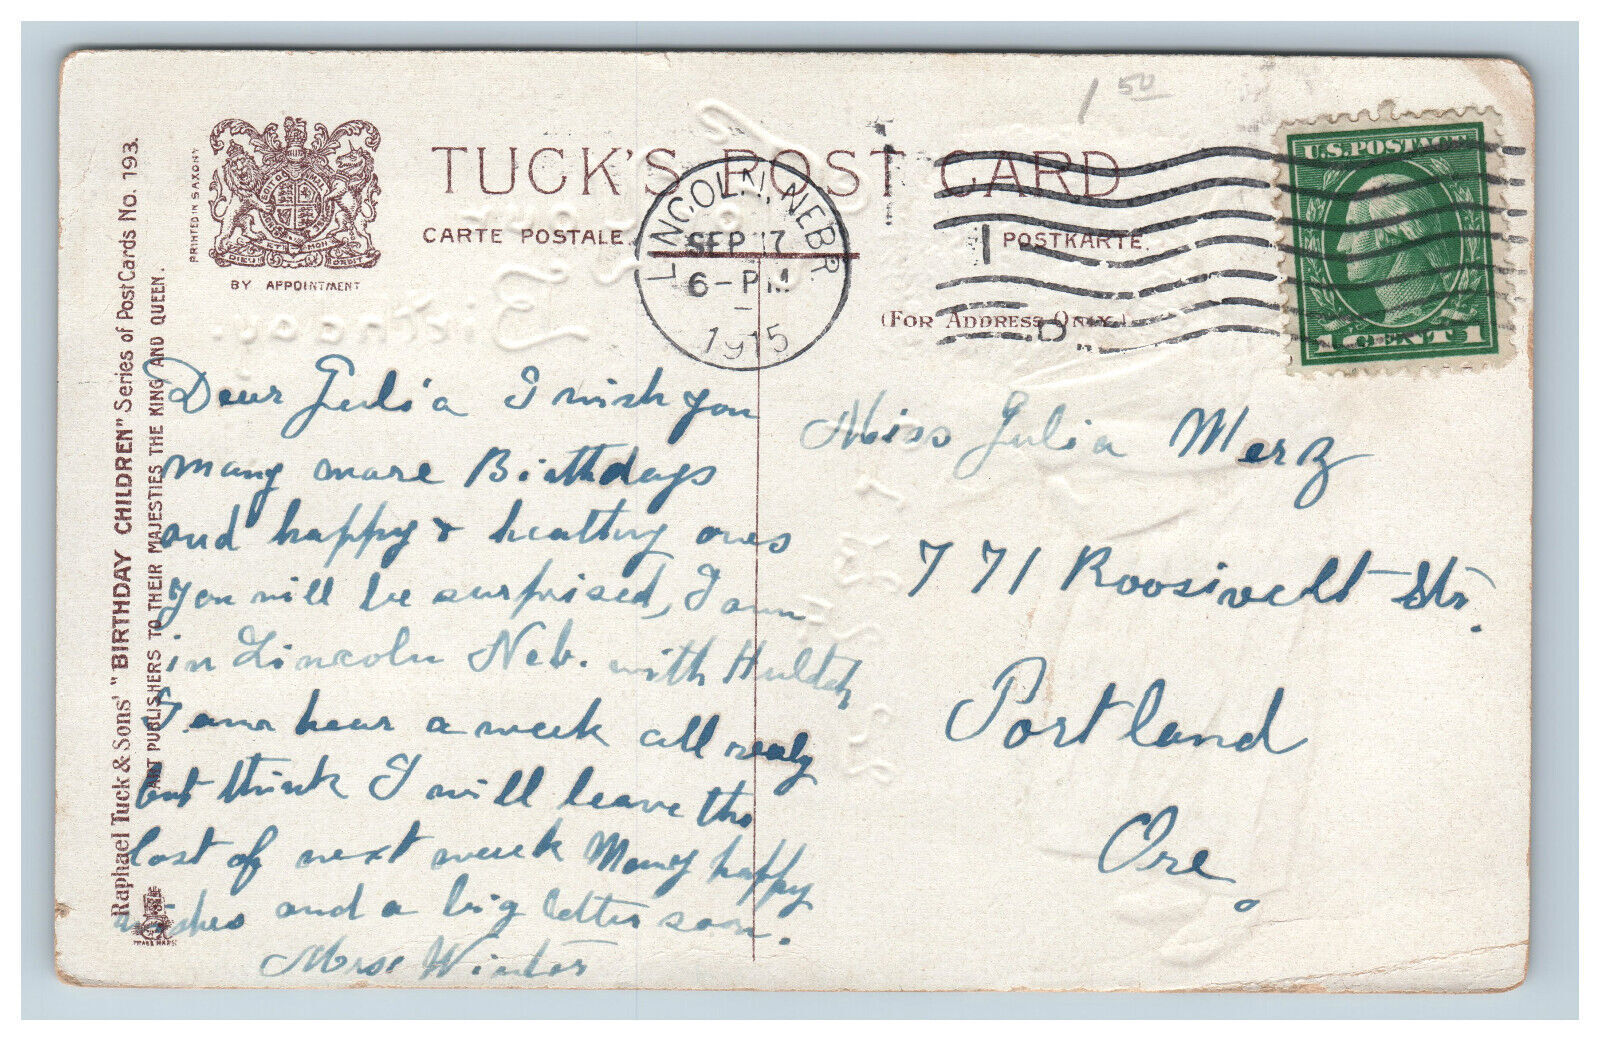 1 50
TUCK'S POST CARD
CARTE POSTALE.
POSTKARTE.
(FOR ADDRESS ONLY.)
PRINTED IN SAXONY
DIEU ET MON DROIT
BY APPOINTMENT
LINCOLN, NEBR.
SEP 17
6-PM
1915
U.S. POSTAGE
1 CENT 1
Raphael Tuck & Sons' "BIRTHDAY CHILDREN" Series of Post Cards No. 193.
ART PUBLISHERS TO THEIR MAJESTIES THE KING AND QUEEN.
TRADE MARK
Dear Julia I wish you
many more Birthdays
and happy & healthy ones
you will be surprised, I am
in Lincoln Neb. with
I am hear a week all ready
but think I will leave the
last of next week Many happy
wishes and a big letter soon.
Mrs Winter
Miss Julia Merz
771 Roosivelt Str.
Portland
Ore.